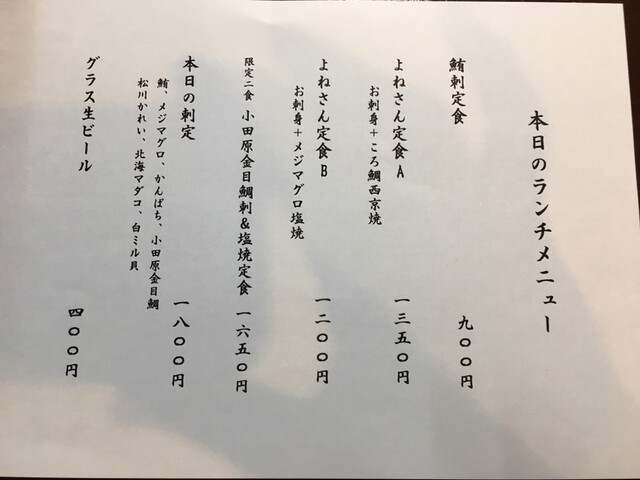 本日のランチメニュー
鮪刺定食 九〇〇円
よねさん定食A 一三五〇円
お刺身+ころ鯛西京焼
よねさん定食B 一二〇〇円
お刺身+メジマグロ塩焼
限定二食 小田原金目鯛刺&塩焼定食 一六五〇円
本日の刺定 一八〇〇円
鮪、メジマグロ、かんぱち、小田原金目鯛
松川かれい、北海マダコ、白ミル貝
グラス生ビール 四〇〇円